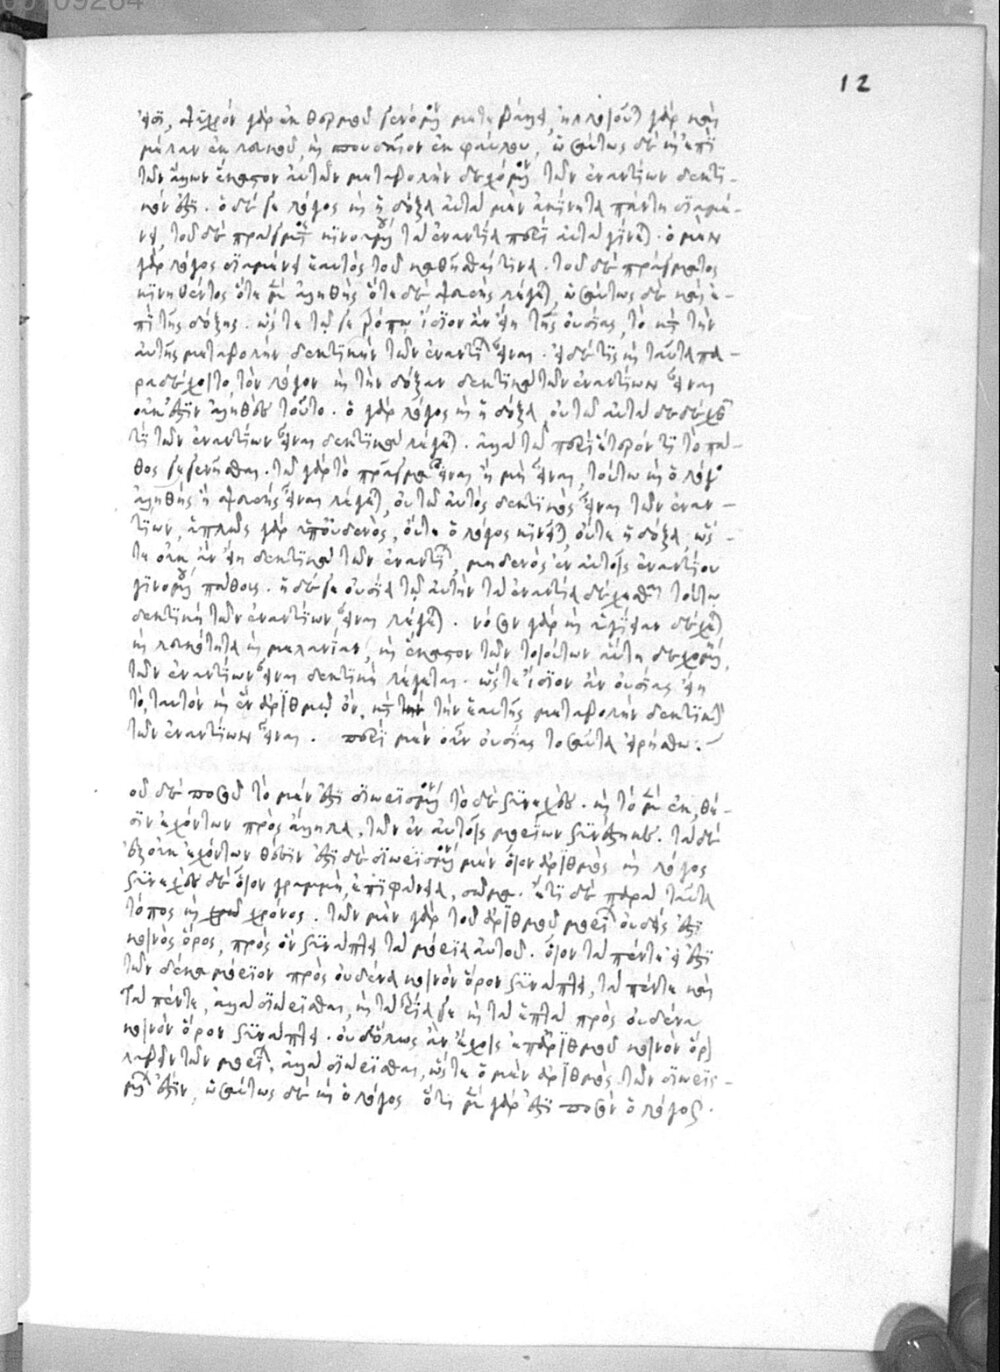 12
ψυχρὸν γὰρ ἐκ θερμοῦ γενόμενον μετέβαλεν, ἠλλοίωται γὰρ καὶ
μέλαν ἐκ λευκοῦ, καὶ σπουδαῖον ἐκ φαύλου, ὡσαύτως δὲ καὶ ἐπὶ
τῶν ἄλλων ἕκαστον αὐτῶν μεταβολὴν δεχόμενον τῶν ἐναντίων δεκτι-
κόν ἐστι. ὁ δέ γε λόγος καὶ ἡ δόξα αὐτὰ μὲν ἀκίνητα πάντη διαμέ-
νει, τοῦ δὲ πράγματος κινουμένου τὰ ἐναντία περὶ αὐτὰ γίνεται. ὁ μὲν
γὰρ λόγος διαμένει ὁ αὐτὸς τοῦ καθῆσθαί τινα. τοῦ δὲ πράγματος
κινηθέντος ὁτὲ μὲν ἀληθὴς ὁτὲ δὲ ψευδὴς λέγεται, ὡσαύτως δὲ καὶ ἐ-
πὶ τῆς δόξης. ὥστε τῷ γε τρόπῳ ἴδιον ἂν εἴη τῆς οὐσίας, τὸ κατὰ τὴν
αὐτῆς μεταβολὴν δεκτικὴν τῶν ἐναντίων εἶναι. εἰ δέ τις καὶ ταῦτα πα-
ραδέχοιτο τὸν λόγον καὶ τὴν δόξαν δεκτικὰ τῶν ἐναντίων εἶναι
οὐκ ἔστιν ἀληθὲς τοῦτο. ὁ γὰρ λόγος καὶ ἡ δόξα, οὐ τῷ αὐτὰ δέδέχθαι
τι τῶν ἐναντίων εἶναι δεκτικὰ λέγεται. ἀλλὰ τῷ περὶ ἕτερόν τι τὸ πά-
θος γεγενῆσθαι. τῷ γὰρ τὸ πρᾶγμα εἶναι ἢ μὴ εἶναι, τούτῳ καὶ ὁ λόγος
ἀληθὴς ἢ ψευδὴς εἶναι λέγεται, οὐ τῷ αὐτὸς δεκτικὸς εἶναι τῶν ἐναν-
τίων, ἁπλῶς γὰρ ὑπ' οὐδενὸς, οὔτε ὁ λόγος κινεῖται, οὔτε ἡ δόξα. ὥσ-
τε οὐκ ἂν εἴη δεκτικὰ τῶν ἐναντίων, μηδενὸς ἐν αὐτοῖς ἐναντίου
γινομένου πάθους. ἡ δέ γε οὐσία τῷ αὐτὴν τὰ ἐναντία δέχεσθαι τούτῳ
δεκτικὴ τῶν ἐναντίων εἶναι λέγεται. νόσον γὰρ καὶ ὑγίειαν δέχεται
καὶ λευκότητα καὶ μελανίαν, καὶ ἕκαστον τῶν τοιούτων αὐτὴ δεχομένη,
τῶν ἐναντίων εἶναι δεκτικὴ λέγεται. ὥστε ἴδιον ἂν οὐσίας εἴη
τὸ, ταυτὸν καὶ ἓν ἀριθμῷ ὂν, κατὰ τὴν ἑαυτῆς μεταβολὴν δεκτικὴν
τῶν ἐναντίων εἶναι. περὶ μὲν οὖν οὐσίας τοσαῦτα εἰρήσθω:
οῦ δὲ ποσοῦ τὸ μέν ἐστι διωρισμένον τὸ δὲ συνεχές. καὶ τὸ μὲν ἐκ θέ-
σιν ἐχόντων πρὸς ἄλληλα, τῶν ἐν αὐτοῖς μορίων συνέστηκε. τὸ δὲ
ἐξ οὐκ ἐχόντων θέσιν. ἔστι δὲ διωρισμένον μὲν οἷον ἀριθμὸς καὶ λόγος
συνεχὲς δὲ οἷον γραμμὴ, ἐπιφάνεια, σῶμα. ἔτι δὲ παρὰ ταῦτα
τόπος καὶ χρόνος. τῶν μὲν γὰρ τοῦ ἀριθμοῦ μορίων οὐδείς ἐστι
κοινὸς ὅρος, πρὸς ὃν συνάπτει τὰ μόρια αὐτοῦ. οἷον τὰ πέντε εἰ ἔστι
τῶν δέκα μόριον πρὸς οὐδένα κοινὸν ὅρον συνάπτει, τὰ πέντε καὶ
τὰ πέντε, ἀλλὰ διώρισται, καὶ τὰ τρία γε καὶ τὰ ἑπτὰ πρὸς οὐδένα
κοινὸν ὅρον συνάπτει. οὐδ' ὅλως ἂν ἔχοις ἐπ' ἀριθμοῦ κοινὸν ὅρον
λαβεῖν τῶν μορίων, ἀλλὰ διώρισται, ὥστε ὁ μὲν ἀριθμὸς τῶν διωρισ-
μένων ἐστίν, ὡσαύτως δὲ καὶ ὁ λόγος ὅτι μὲν γάρ ἐστι ποσὸν ὁ λόγος.